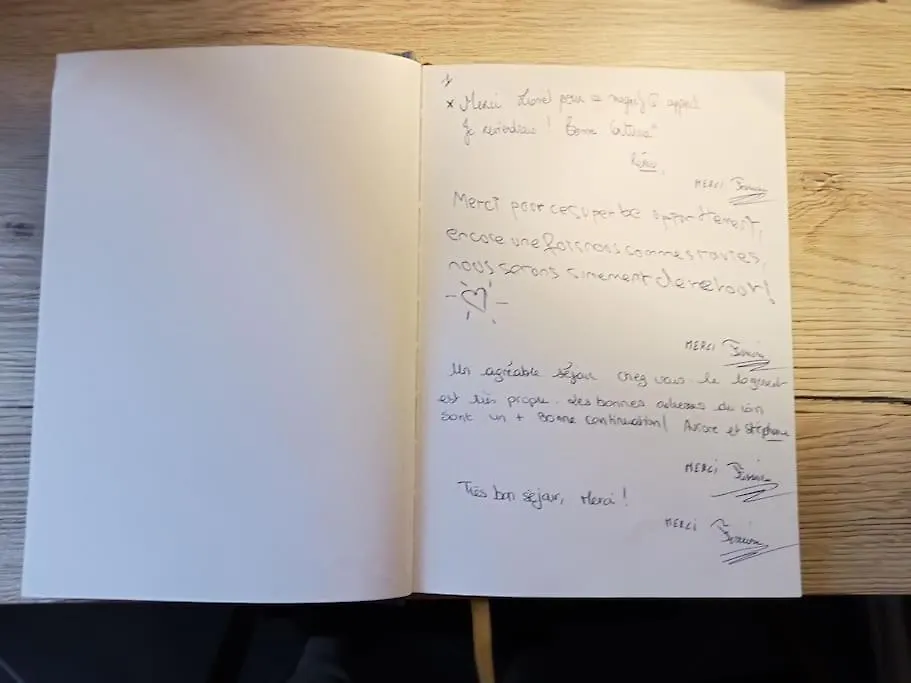 1
x Merci Lionel pour ce appart
Je reviendrai ! Bonne
MERCI
Merci pour ce superbe appartement,
encore une fois nous sommes ravies,
nous serons surement de retour!
MERCI
Un agréable séjour chez vous le logement
est très propre. Les bonnes adresses du coin
sont un + Bonne continuation! Aurore et Stéphane
MERCI
Très bon séjour, Merci !
MERCI